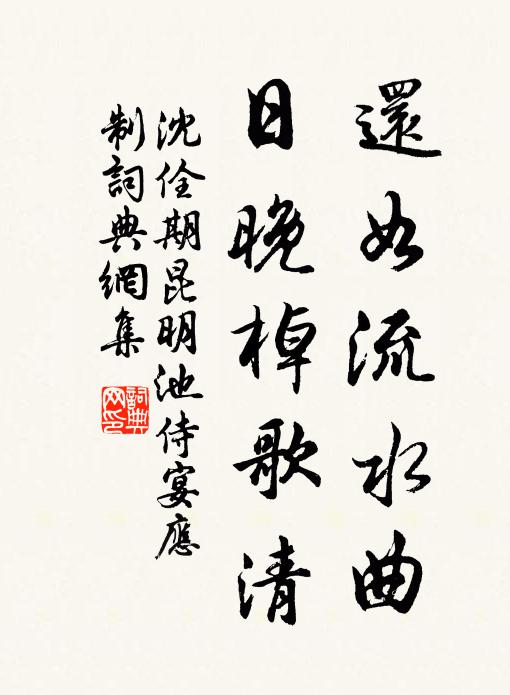 還如流水曲
日晚棹歌清
沈佺期昆明池侍宴應
制詞典網集
詞典
网印